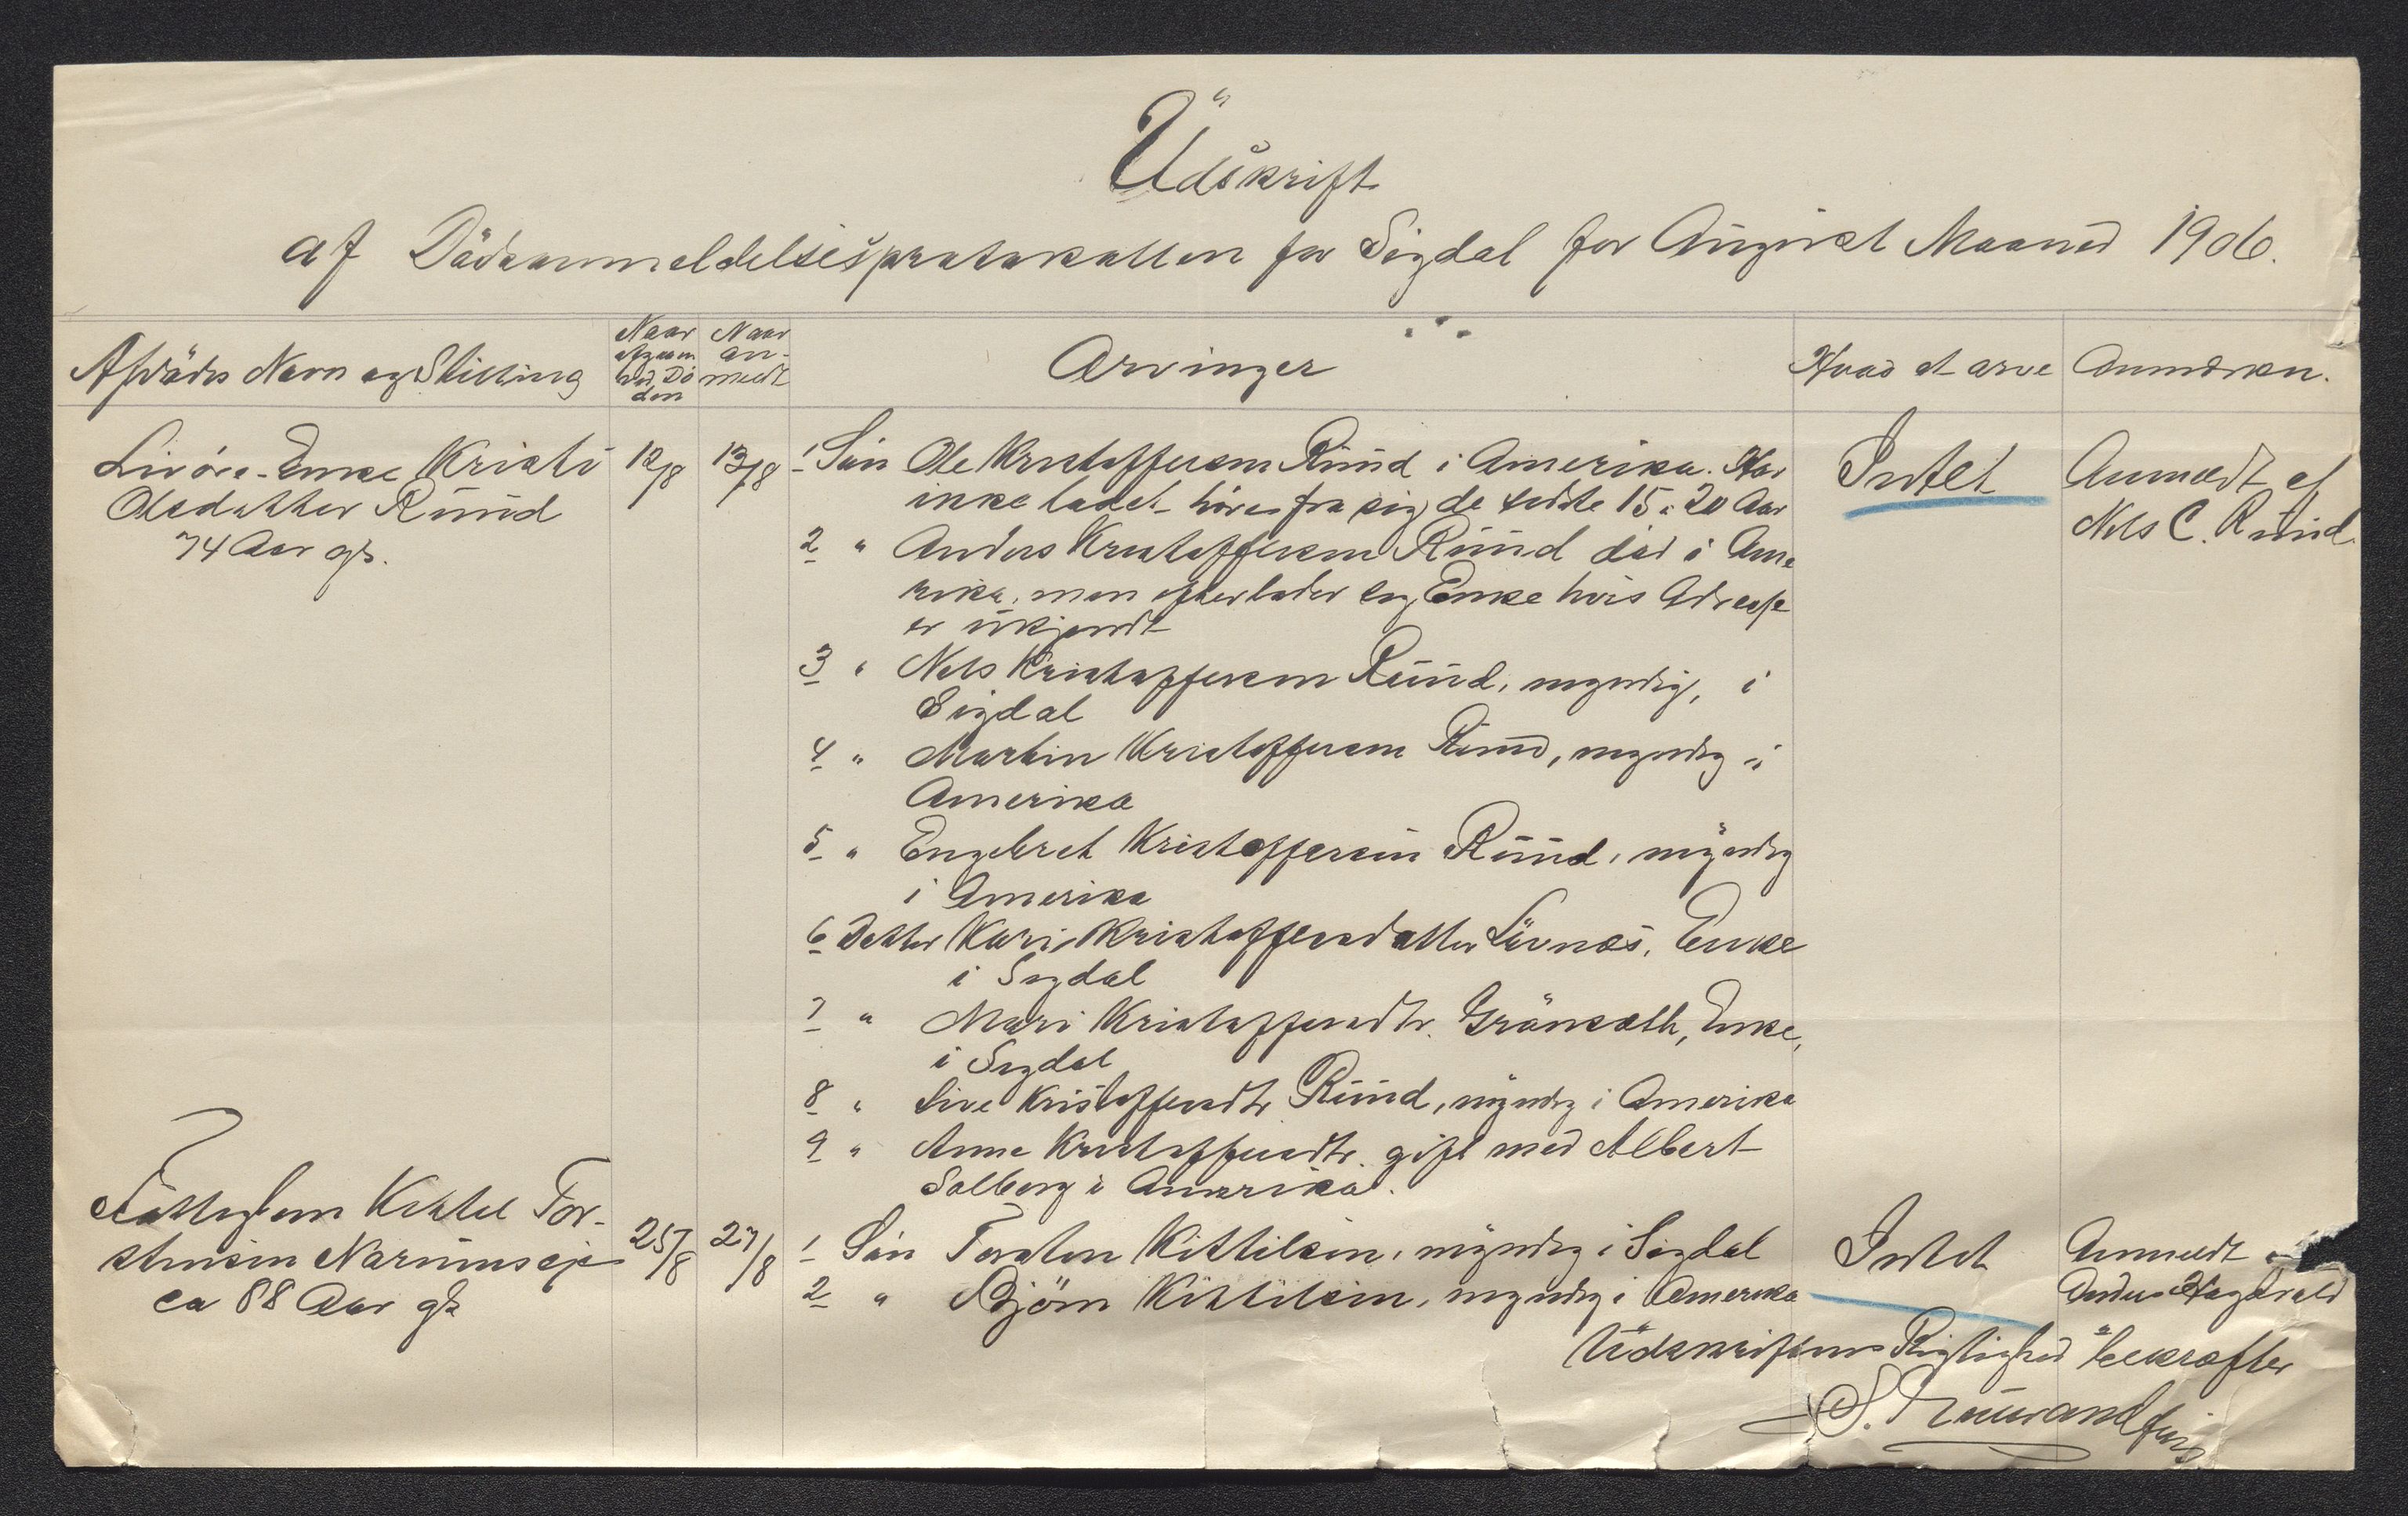 Udskrift
af Dødsanmeldelsesprotokollen for Sigdal for August Maaned 1906.
Afdødes Navn og Stilling
Naar
afgaaet
ved Dø
den
Naar
an-
meldt
Arvinger
Hvad at arve
Anmærkn.
Livøre-Enke Kristi
Olsdatter Ruud
74 Aar gl.
12/8
13/8
1 Søn Ole Kristoffersen Ruud i Amerika. Har
ikke ladet høre fra sig de sidste 15 a 20 Aar
2 " Anders Kristoffersen Ruud død i Ame
rika, men efterlader sig Enke hvis Adresse
er ukjendt
3 " Nels Kristoffersen Ruud, myndig, i
Sigdal
4 " Martin Kristoffersen Ruud, myndig i
Amerika
5 " Engebret Kristoffersen Ruud, myndig
i Amerika
6 Datter Kari Kristoffersdatter Løvnæs, Enke
i Sigdal
7 " Mari Kristoffersdtr. Grønsæth, Enke,
i Sigdal
8 " Live Kristoffersdtr Ruud, myndig i Amerika
9 " Anne Kristoffersdtr. gift med Albert
Solberg i Amerika.
Intet
Anmeldt af
Nels C. Ruud
Fattiglem Kittel Tor-
stensen Narumseje
ca 88 Aar gl.
25/8
27/8
1 Søn Torsten Kittilsen, myndig i Sigdal
2 " Bjørn Kittilsen, myndig i Amerika
Intet
Anmeldt
Anders
Udskriftens Rigtighed bekræfter
S.